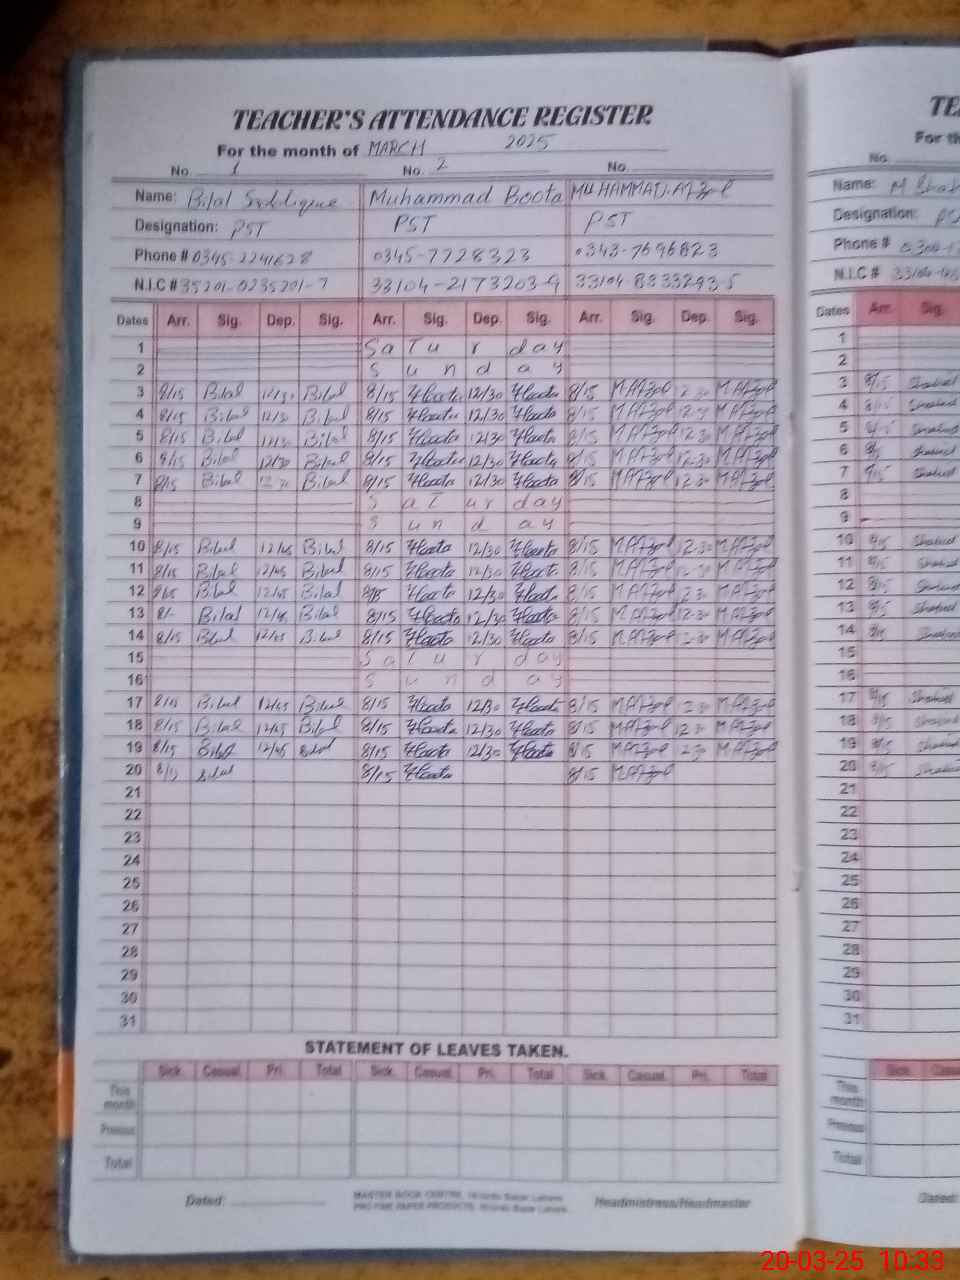 TEACHER'S ATTENDANCE REGISTER
For the month of MARCH 2025
No. 1 No. 2 No.
Name: Bilal Siddique Muhammad Boota MUHAMMAD.AFzol
Designation: PST PST PST
Phone # 0345-2241628 0345-7728323 0343-7696823
N.I.C # 35201-0235201-7 33104-2173203-9 33104 8333293-5
Dates Arr. Sig. Dep. Sig. Arr. Sig. Dep. Sig. Arr. Sig. Dep. Sig.
1 SaTurday
2 Sunday
3 8/15 Bilal 12/30 Bilal 8/15 12/30 8/15 M.AFzol 12-30 M.AFzol
4 8/15 Bilal 12/30 Bilal 8/15 12/30 8/15 M.AFzol 12-30 M.AFzol
5 8/15 Bilal 12/30 Bilal 8/15 12/30 8/15 M.AFzol 12-30 M.AFzol
6 8/15 Bilal 12/30 Bilal 8/15 12/30 8/15 M.AFzol 12-30 M.AFzol
7 8/15 Bilal 12 30 Bilal 8/15 12/30 8/15 M.AFzol 12-30 M.AFzol
8 SaTurday
9 Sunday
10 8/15 Bilal 12/45 Bilal 8/15 12/30 8/15 M.AFzol 12-30 M.AFzol
11 8/15 Bilal 12/45 Bilal 8/15 12/30 8/15 M.AFzol 12-30 M.AFzol
12 8/15 Bilal 12/45 Bilal 8/15 12/30 8/15 M.AFzol M.AFzol
13 8/- Bilal 12/45 Bilal 8/15 12/30 8/15 M.AFzol 12-30 M.AFzol
14 8/15 Bilal 12/45 Bilal 8/15 12/30 8/15 M.AFzol M.AFzol
15 SaTurday
16 Sunday
17 8/15 Bilal 12/45 Bilal 8/15 12/30 8/15 M.AFzol 12-30 M.AFzol
18 8/15 Bilal 12/45 Bilal 8/15 12/30 8/15 M.AFzol 12-30 M.AFzol
19 8/15 Bilal 12/45 Bilal 8/15 12/30 8/15 M.AFzol M.AFzol
20 8/15 Bilal 8/15 8/15 M.AFzol
21
22
23
24
25
26
27
28
29
30
31
STATEMENT OF LEAVES TAKEN.
Sick. Casual. Pri. Total Sick. Casual. Pri. Total Sick. Casual. Pri. Total
This month
Previous
Total
Dated: Headmistress/Headmaster
MASTER BOOK CENTRE, Urdu Bazar Lahore.
PRO FINE PAPER PRODUCTS, Urdu Bazar Lahore.
TE
For th
No.
Name: M Sha
Designation: PS
Phone # 0300-
N.I.C # 33104
Dates Arr. Sig.
1
2
3 8/15 Shahid
4 8/15 Shahid
5 8/15 Shahid
6 Shahid
7 8/15 Shahid
8
9
10 8/15 Shahid
11 8/15 Shahid
12 8/15 Shahid
13 8/15 Shahid
14 8/15
15
16
17 8/15 Shahid
18 8/15 Shahid
19 8/15 Shahid
20 8/15 Shahid
21
22
23
24
25
26
27
28
29
30
31
Sick Casu
This month
Previous
Total
Dated:
20-03-25 10:33